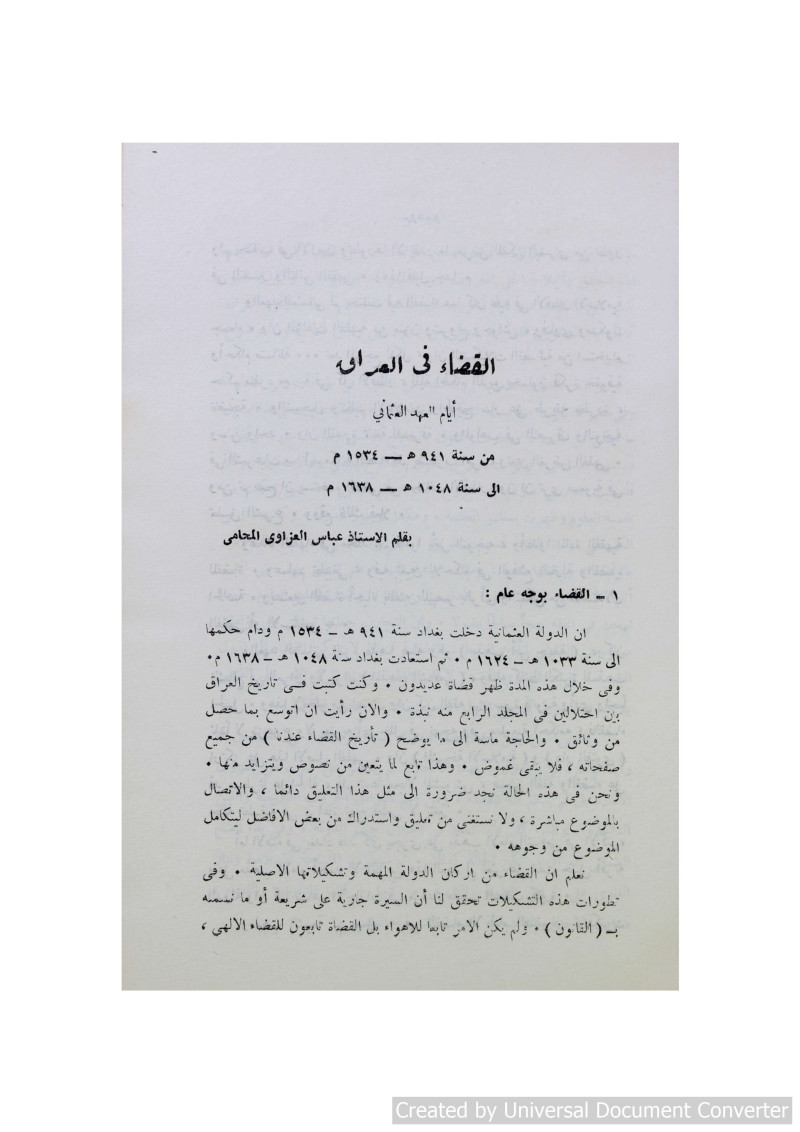 القضاء فى العراق
أيام العهد العثماني
من سنة ٩٤١ هـ ــ ١٥٣٤ م
الى سنة ١٠٤٨ هـ ــ ١٦٣٨ م
بقلم الاستاذ عباس العزاوى المحامى
١ ــ القضاء بوجه عام :
ان الدولة العثمانية دخلت بغداد سنة ٩٤١ هـ ــ ١٥٣٤ م ودام حكمها
الى سنة ١٠٣٣ هـ ــ ١٦٢٤ م ٠ ثم استعادت بغداد سنة ١٠٤٨ هـ ــ ١٦٣٨ م٠
وفى خلال هذه المدة ظهر قضاة عديدون ٠ وكنت كتبت فــى تاريخ العراق
بين احتلالين فى المجلد الرابع منه نبذة ٠ والان رأيت ان اتوسع بما حصل
من وثائق ٠ والحاجة ماسة الى ما يوضح ( تأريخ القضاء عندنا ) من جميع
صفحاته ، فلا يبقى غموض ٠ وهذا تابع لما يتعين من نصوص ويتزايد منها ٠
ونحن فى هذه الحالة نجد ضرورة الى مثل هذا التعليق دائما ، والاتصال
بالموضوع مباشرة ، ولا نستغنى من تعليق واستدراك من بعض الافاضل ليتكامل
الموضوع من وجوهه ٠
نعلم ان القضاء من اركان الدولة المهمة وتشكيلاتها الاصلية ٠ وفى
تطورات هذه التشكيلات تحقق لنا أن السيرة جارية على شريعة أو ما نسمه
بــ ( القانون ) ٠ ولم يكن الامر تابعا للاهواء بل القضاة تابعون للقضاء الالهي ،
Created by Universal Document Converter